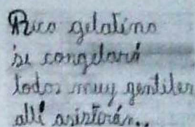 Rico gelatino
se congelará
todos muy gentiles
allí asistirán.